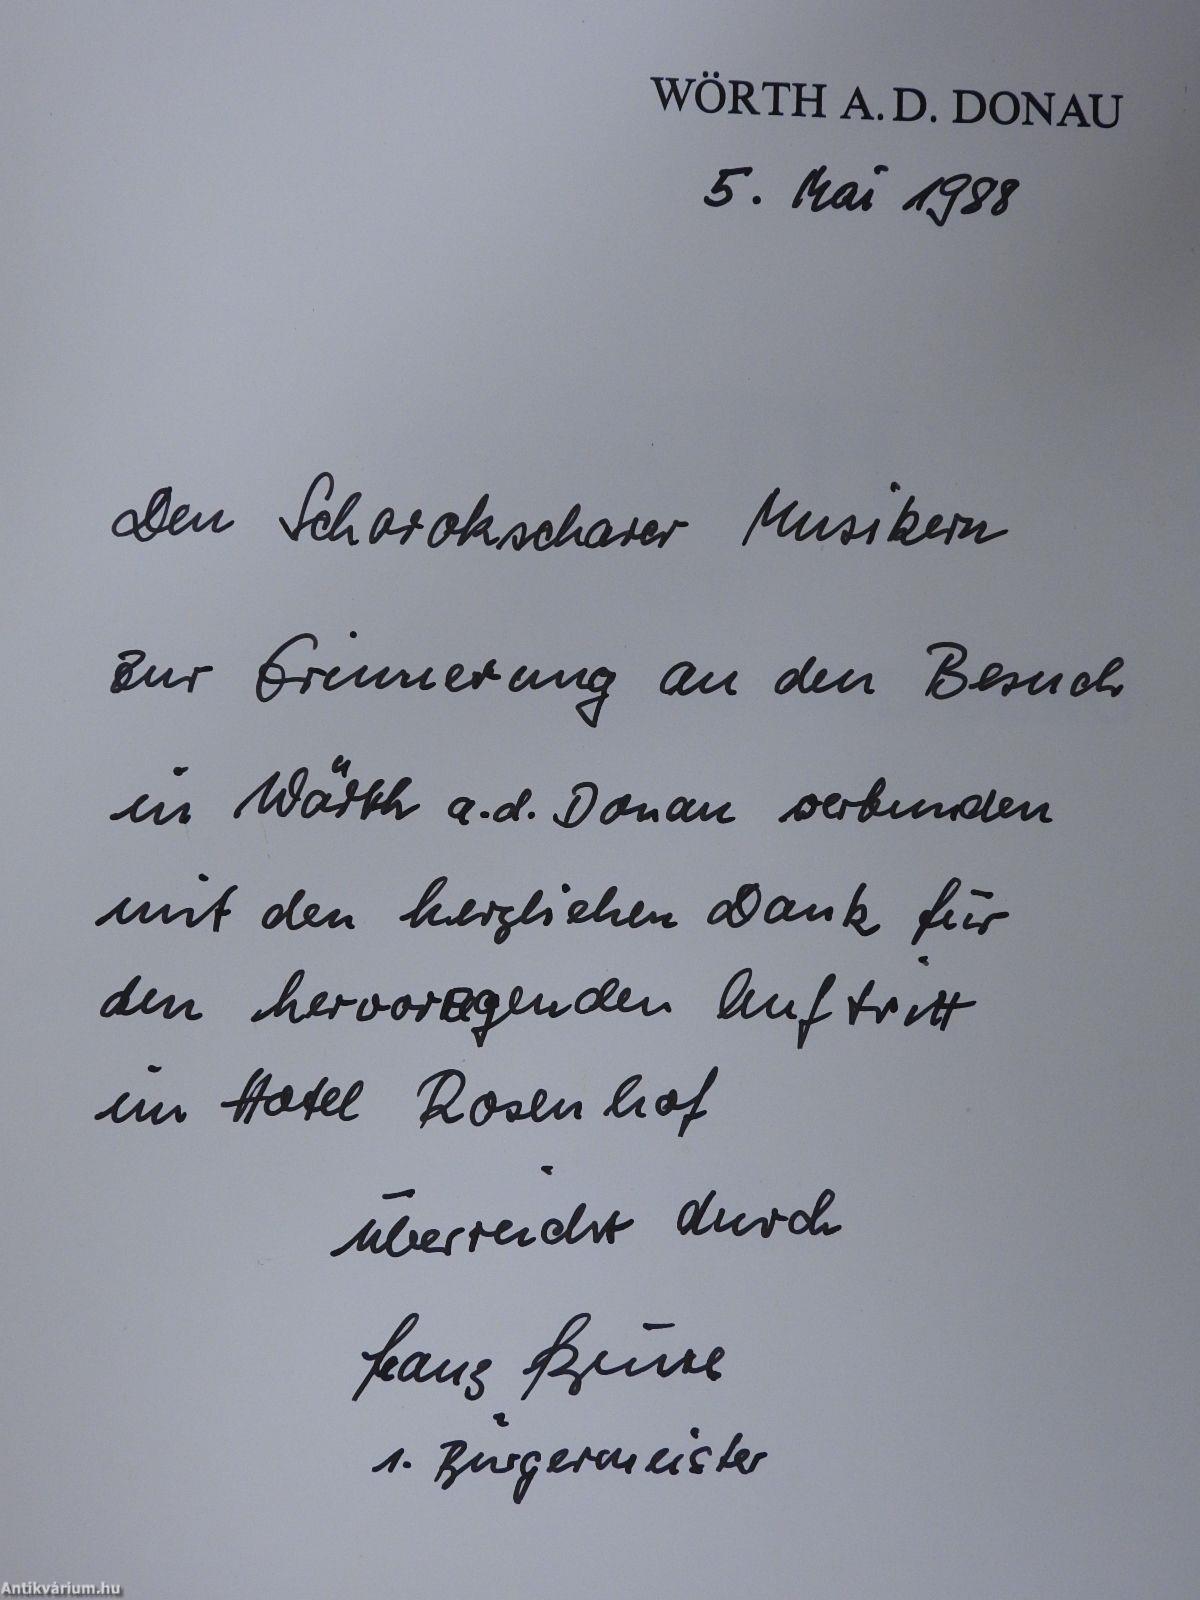 WÖRTH A. D. DONAU
5. Mai 1988
Den Scharokscharer Musikern
zur Erinnerung an den Besuch
in Wörth a.d. Donau verbunden
mit den herzlichen Dank für
den hervorragenden Auftritt
im Hotel Rosenhof
überreicht durch
Franz
1. Bürgermeister
Antikvárium.hu